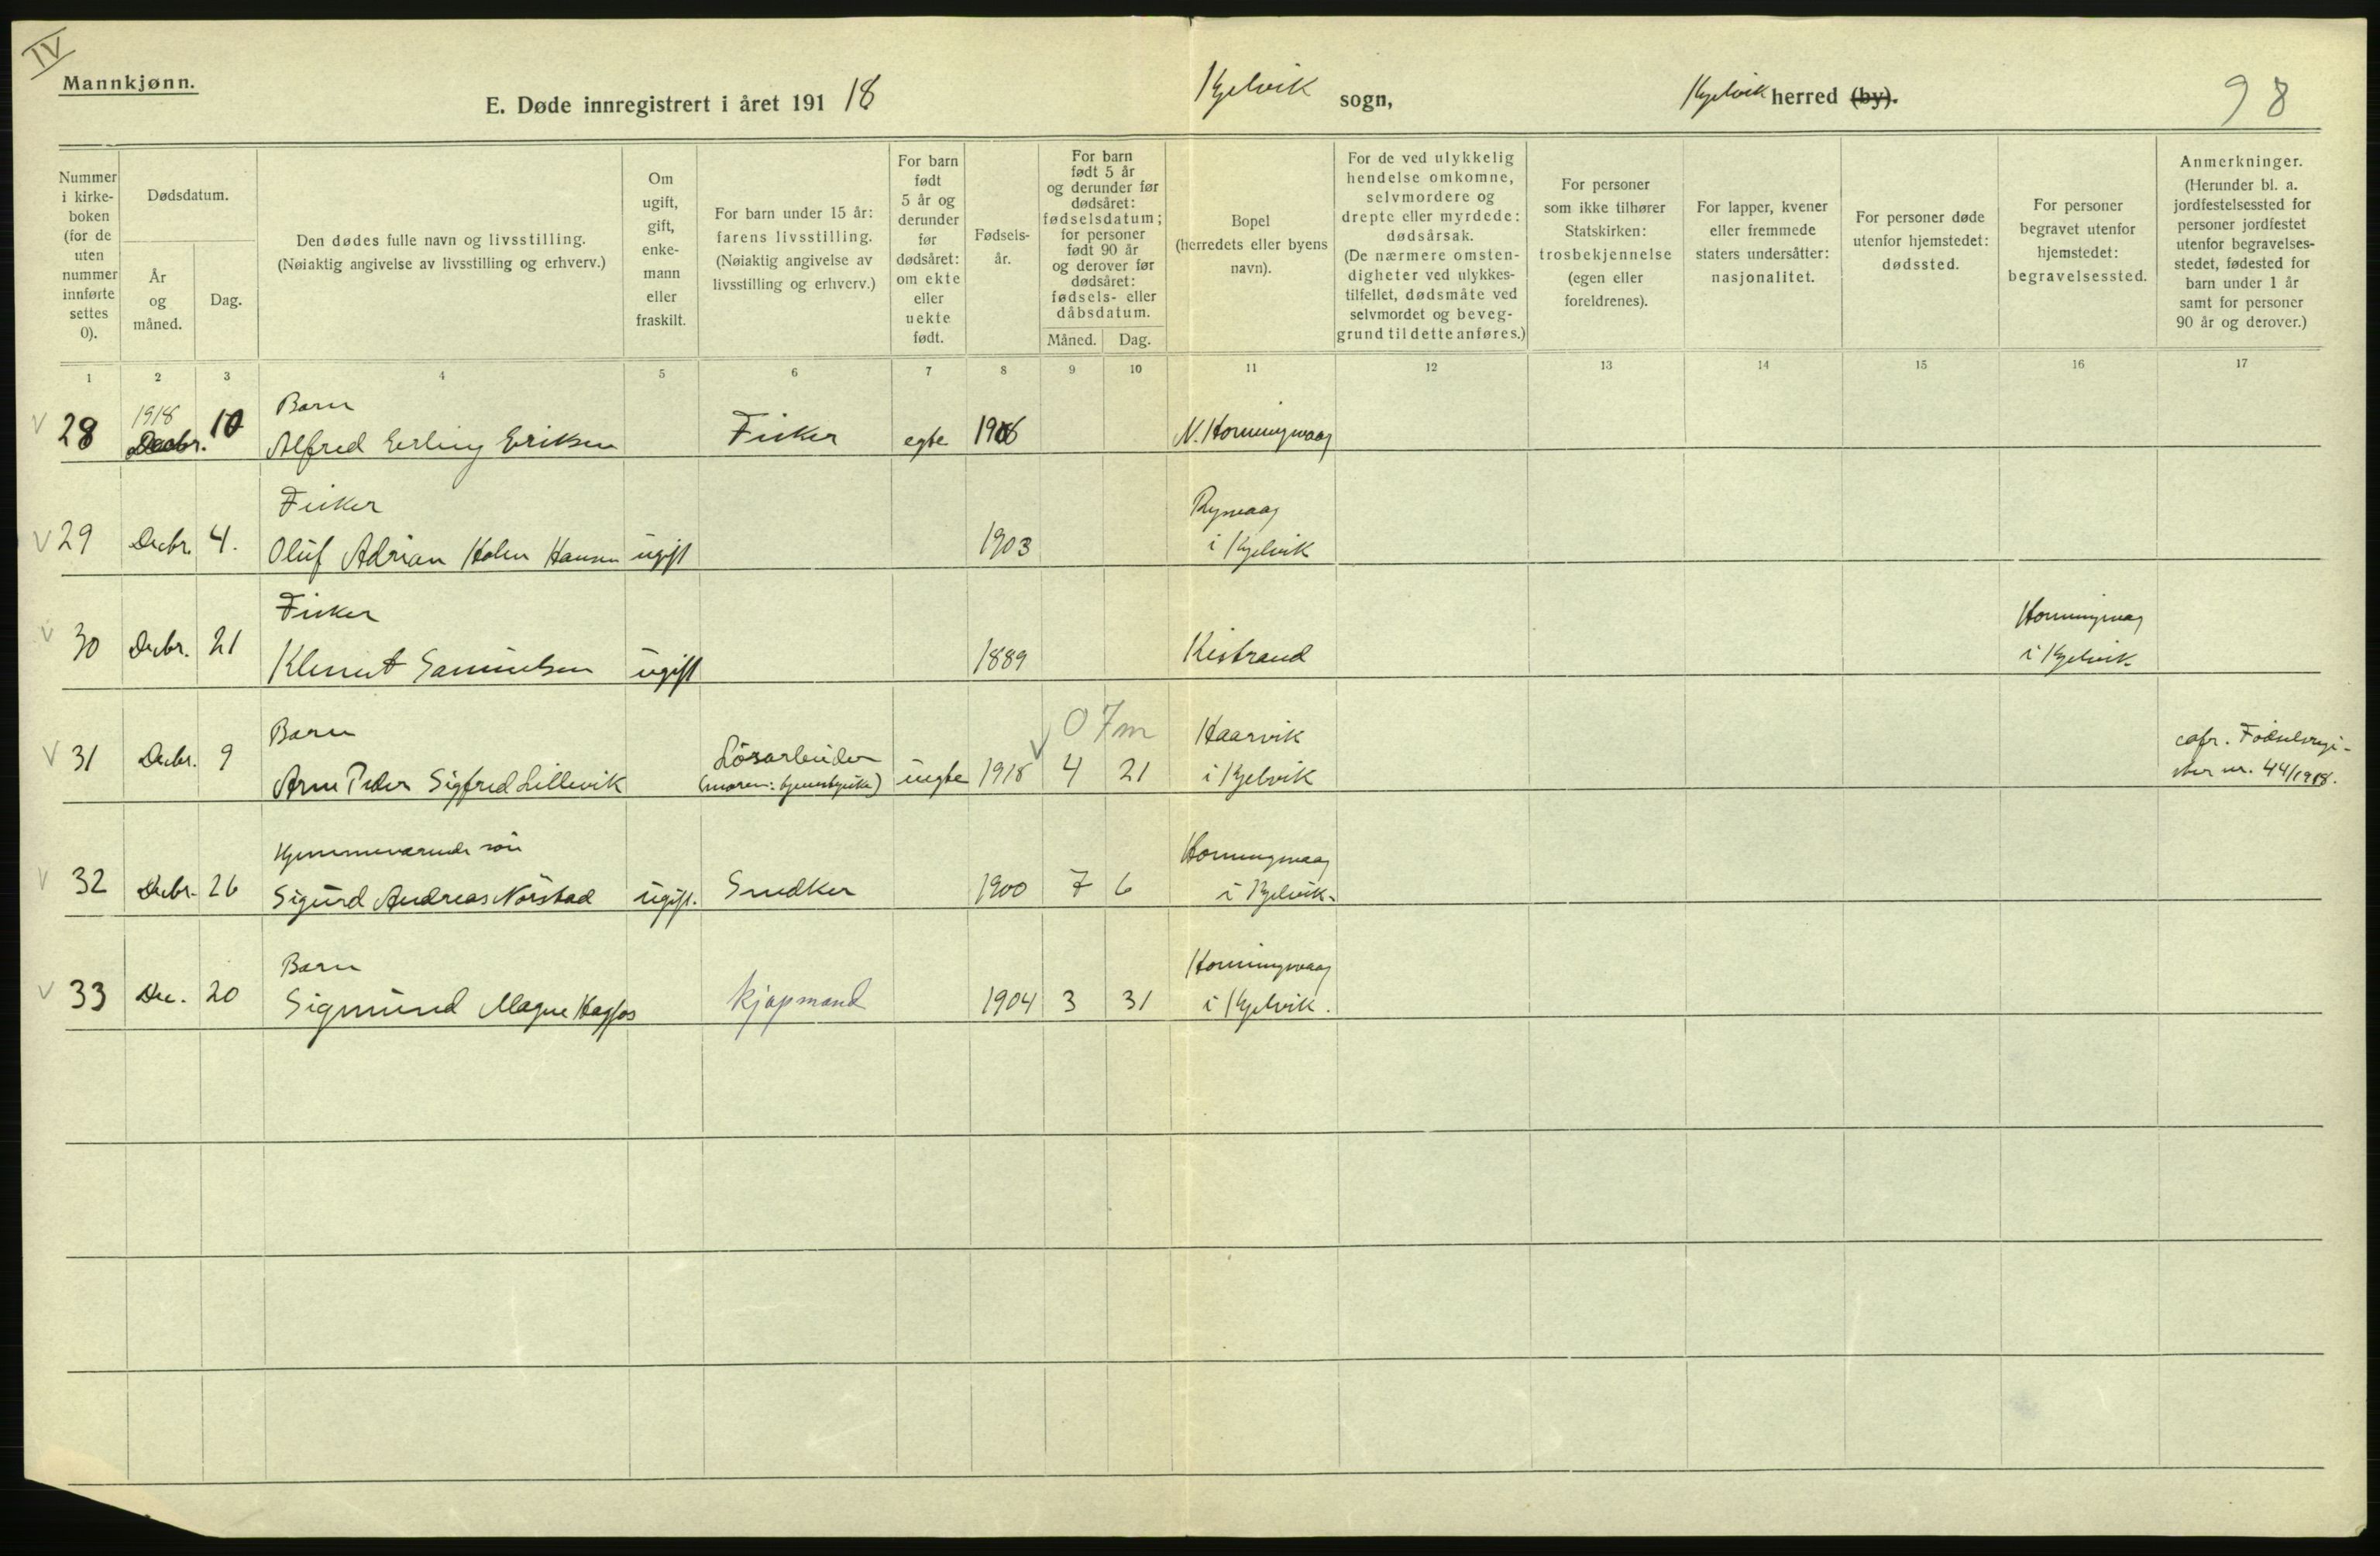 IV
Mannkjønn.
E. Døde innregistrert i året 191 18 Kjelvik sogn, Kjelvik herred (by).
98
Nummer i kirke- boken (for de uten nummer innførte settes 0).
Dødsdatum.
År og måned.
Dag.
Den dødes fulle navn og livsstilling.
(Nøiaktig angivelse av livsstilling og erhverv.)
Om ugift, gift, enke- mann eller fraskilt.
For barn under 15 år: farens livsstilling.
(Nøiaktig angivelse av livsstilling og erhverv.)
For barn født 5 år og derunder før dødsåret: om ekte eller uekte født.
Fødsels- år.
For barn født 5 år og derunder før dødsåret: fødselsdatum; for personer født 90 år og derover før dødsåret: fødsels- eller dåbsdatum.
Måned.
Dag.
Bopel (herredets eller byens navn).
For de ved ulykkelig hendelse omkomne, selvmordere og drepte eller myrdede: dødsårsak.
(De nærmere omsten- digheter ved ulykkes- tilfellet, dødsmåte ved selvmordet og beveg- grund til dette anføres.)
For personer som ikke tilhører Statskirken: trosbekjennelse (egen eller foreldrenes).
For lapper, kvener eller fremmede staters undersåtter: nasjonalitet.
For personer døde utenfor hjemstedet: dødssted.
For personer begravet utenfor hjemstedet: begravelsessted.
Anmerkninger.
(Herunder bl. a. jordfestelsessted for personer jordfestet utenfor begravelses- stedet, fødested for barn under 1 år samt for personer 90 år og derover.)
1 2 3 4 5 6 7 8 9 10 11 12 13 14 15 16 17
1918 Barn
V 28 Decbr. 10 Alfred Erling Eriksen Fisker egte 1906 N. Honningsvaag
Fisker
V 29 Decbr. 4. Oluf Adrian Holm Hansen ugift 1903 i Kjelvik
Fisker Honningsvag
V 30 Decbr. 21 Klemet Samuelsen ugift 1889 Kistrand i Kjelvik
Barn Løsarbeider V 0 7m Haarvik
V 31 Decbr. 9 Arne Peder Sigfred Lillevik (moren: tjenestepike) uegte 1918 4 21 i Kjelvik
cofr. Fødselsregi-
ster nr. 44/1918.
Hjemmeværende søn Honningsvaag
V 32 Decbr. 26 Sigurd Andreas Norstad ugift. Snedker 1900 7 6 i Kjelvik.
Barn Honningsvaag
V 33 Dec. 20 Sigmund Magne Hagfos kjøpmand 1904 3 31 i Kjelvik.